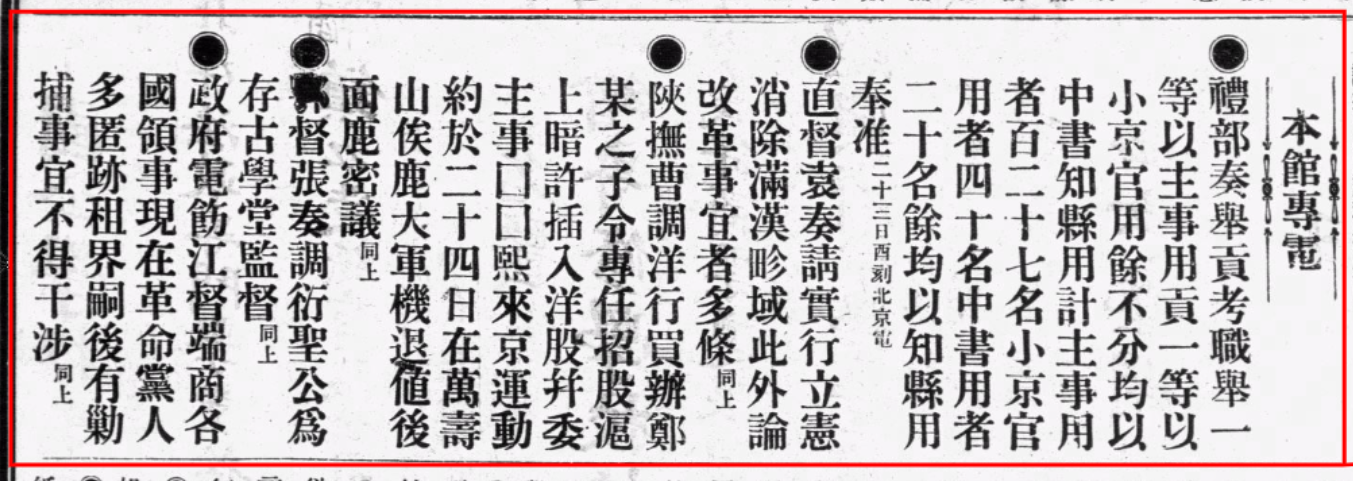 本館專電
●禮部奏舉貢考職舉一
等以主事用貢一等以
小京官用餘不分均以
中書知縣用計主事用
者百二十七名小京官
用者四十名中書用者
二十名餘均以知縣用
奉准二十三日酉刻北京電
●直督袁奏請實行立憲
消除滿漢畛域此外論
改革事宜者多條同上
●陝撫曹調洋行買辦鄭
某之子令專任招股滬
上暗許插入洋股幷委
主事囗囗熙來京運動
約於二十四日在萬壽
山俟鹿大軍機退値後
面鹿密議同上
●鄂督張奏調衍聖公爲
存古學堂監督同上
●政府電飭江督端商各
國領事現在革命黨人
多匿跡租界嗣後有勦
捕事宜不得干涉同上